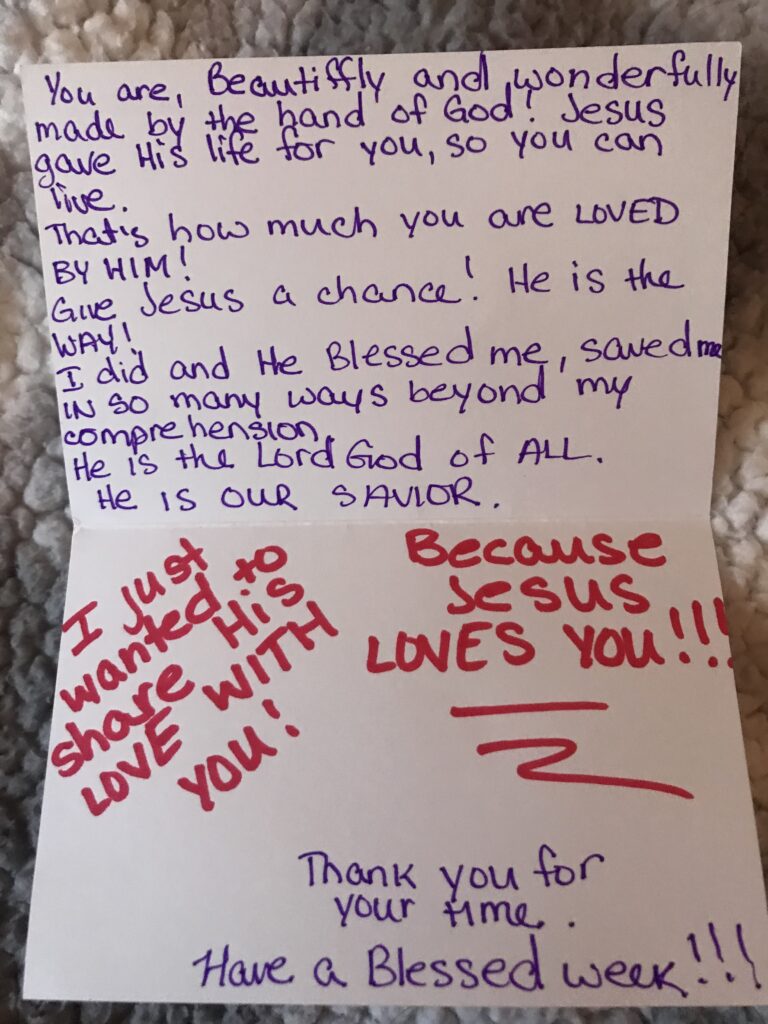 You are, Beautiffly and wonderfully
made by the hand of God! Jesus
gave His life for you, so you can
live.
That's how much you are LOVED
BY HIM!
Give Jesus a chance! He is the
WAY!
I did and He Blessed me, saved me
IN so many ways beyond my
comprehension.
He is the Lord God of ALL.
He IS OUR SAVIOR.
I just
wanted to
share His
LOVE WITH
YOU!
Because
Jesus
LOVES YOU!!!
Thank you for
your time.
Have a Blessed week!!!